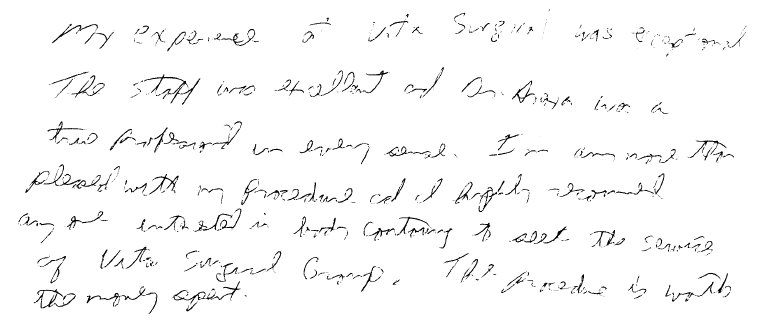 My experience at Vita Surgical was exceptional
The staff was excellent and Dr. Anaya was a
true professional in every sense. I'm am more than
pleased with my procedure and I highly recommend
any one interested in body contouring to seek the services
of Vita Surgical Group. The procedure is worth
the money spent.